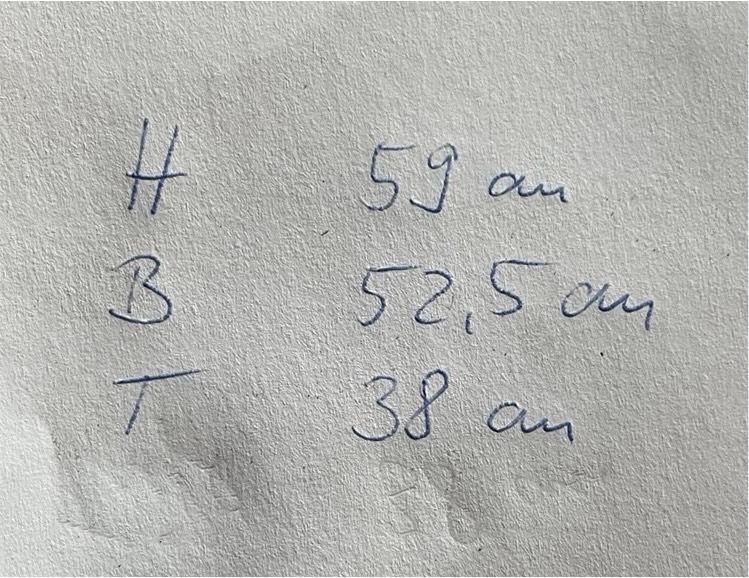 H 59 cm
B 52,5 cm
T 38 cm